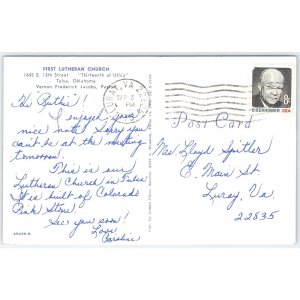 FIRST LUTHERAN CHURCH
1645 E. 13th Street "Thirteenth at Utica"
Tulsa, Oklahoma
Vernon Frederick Jacobs, Pastor
PM
EISENHOWER USA
Post Card
Hi Ruthie!
I enjoyed your
nice note. Sorry you
can't be at the meeting
tomorrow.
This is our
Lutheran Church in Tulsa
It is built of Colorado
Pink Stone.
See you soon!
Love,
Caroline
Mrs Lloyd Spitler
E. Main St
Luray, Va.
22835